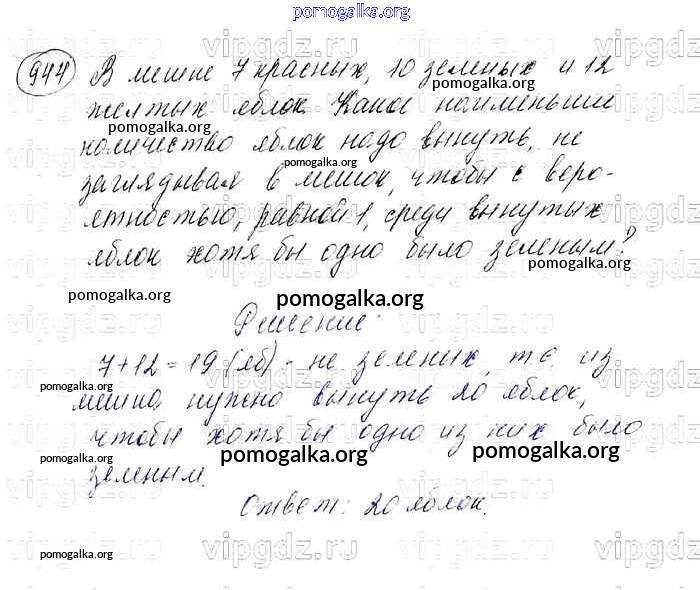 pomogalka.org
944 В мешке 7 красных, 10 зеленых и 12
pomogalka.org
желтых яблок. Какое наименьшее
pomogalka.org
количество яблок надо вынуть, не
pomogalka.org
заглядывая в мешок, чтобы с веро-
ятностью, равной 1, среди вынутых
pomogalka.org pomogalka.org
яблок хотя бы одно было зеленым?
pomogalka.org
pomogalka.org pomogalka.org
Решение:
7+12=19 (яб) - не зеленых, т.е. из
pomogalka.org
мешка нужно вынуть 20 яблок,
чтобы хотя бы одно из них было
pomogalka.org pomogalka.org pomogalka.org
зеленым.
Ответ: 20 яблок.
pomogalka.org pomogalka.org
vipgdz vipgdz vipgdz vipgdz